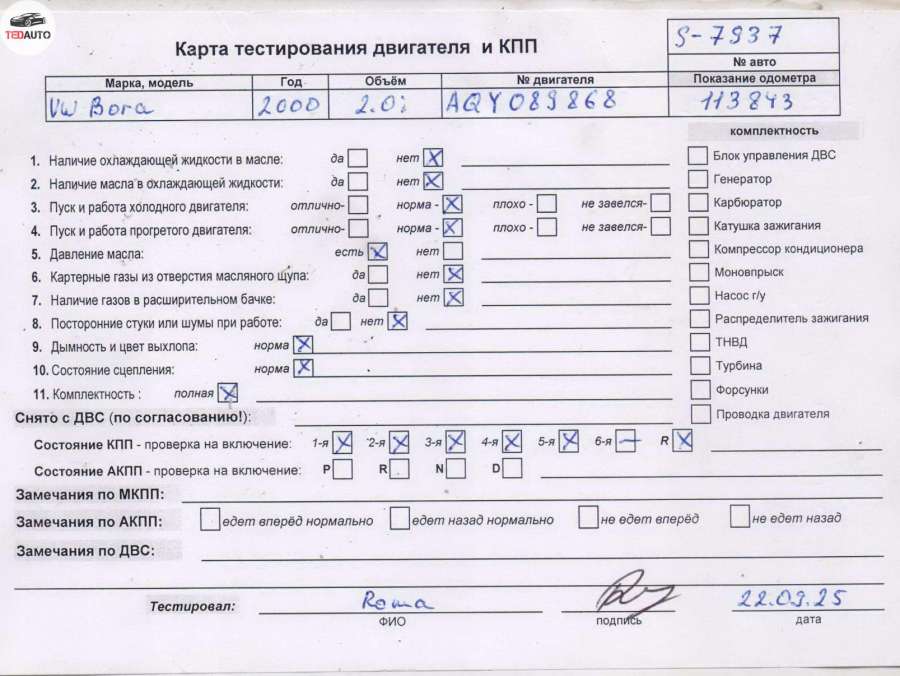 TEDAUTO
Карта тестирования двигателя и КПП
S-7937
№ авто
Марка, модель Год Объём № двигателя Показание одометра
VW Bora 2000 2.0i AQY089868 113843
комплектность
1. Наличие охлаждающей жидкости в масле: да нет X
Блок управления ДВС
2. Наличие масла в охлаждающей жидкости: да нет X
Генератор
3. Пуск и работа холодного двигателя: отлично- норма - X плохо - не завелся-
Карбюратор
4. Пуск и работа прогретого двигателя: отлично- норма - X плохо - не завелся-
Катушка зажигания
5. Давление масла: есть X нет
Компрессор кондиционера
6. Картерные газы из отверстия масляного щупа: да нет X
Моновпрыск
7. Наличие газов в расширительном бачке: да нет X
Насос г/у
8. Посторонние стуки или шумы при работе: да нет X
Распределитель зажигания
9. Дымность и цвет выхлопа: норма X
ТНВД
10. Состояние сцепления: норма X
Турбина
11. Комплектность : полная X
Форсунки
Снято с ДВС (по согласованию!):
Проводка двигателя
Состояние КПП - проверка на включение: 1-я X 2-я X 3-я X 4-я X 5-я X 6-я — R X
Состояние АКПП - проверка на включение: P R N D
Замечания по МКПП:
Замечания по АКПП: едет вперёд нормально едет назад нормально не едет вперёд не едет назад
Замечания по ДВС:
Тестировал: Roma 22.09.25
ФИО подпись дата